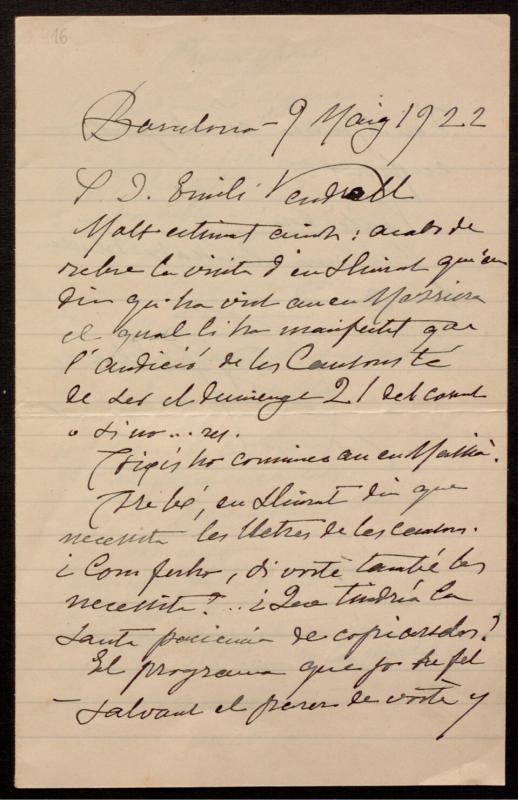 16
Barcelona – 9 Maig 1922
S. D. Emili Vendrell
Molt estimat amich: acabo de
rebre la visita d'en Llurat qu'em
diu qu'ha vist an en Masriera
el qual li ha manifestat que
l'audició de les Cansons té
de ser el diumenge 21 del corrent
o sino... res.
ho comunico an en
Are bé, en Llurat diu que
necessita les lletres de les cansons.
¿Com ferho, si vosté també les
necessita?.. ¿Que tindría la
santa paciencia de copiarseles?
El programa que jo he fet
– salvant el parer de vosté y